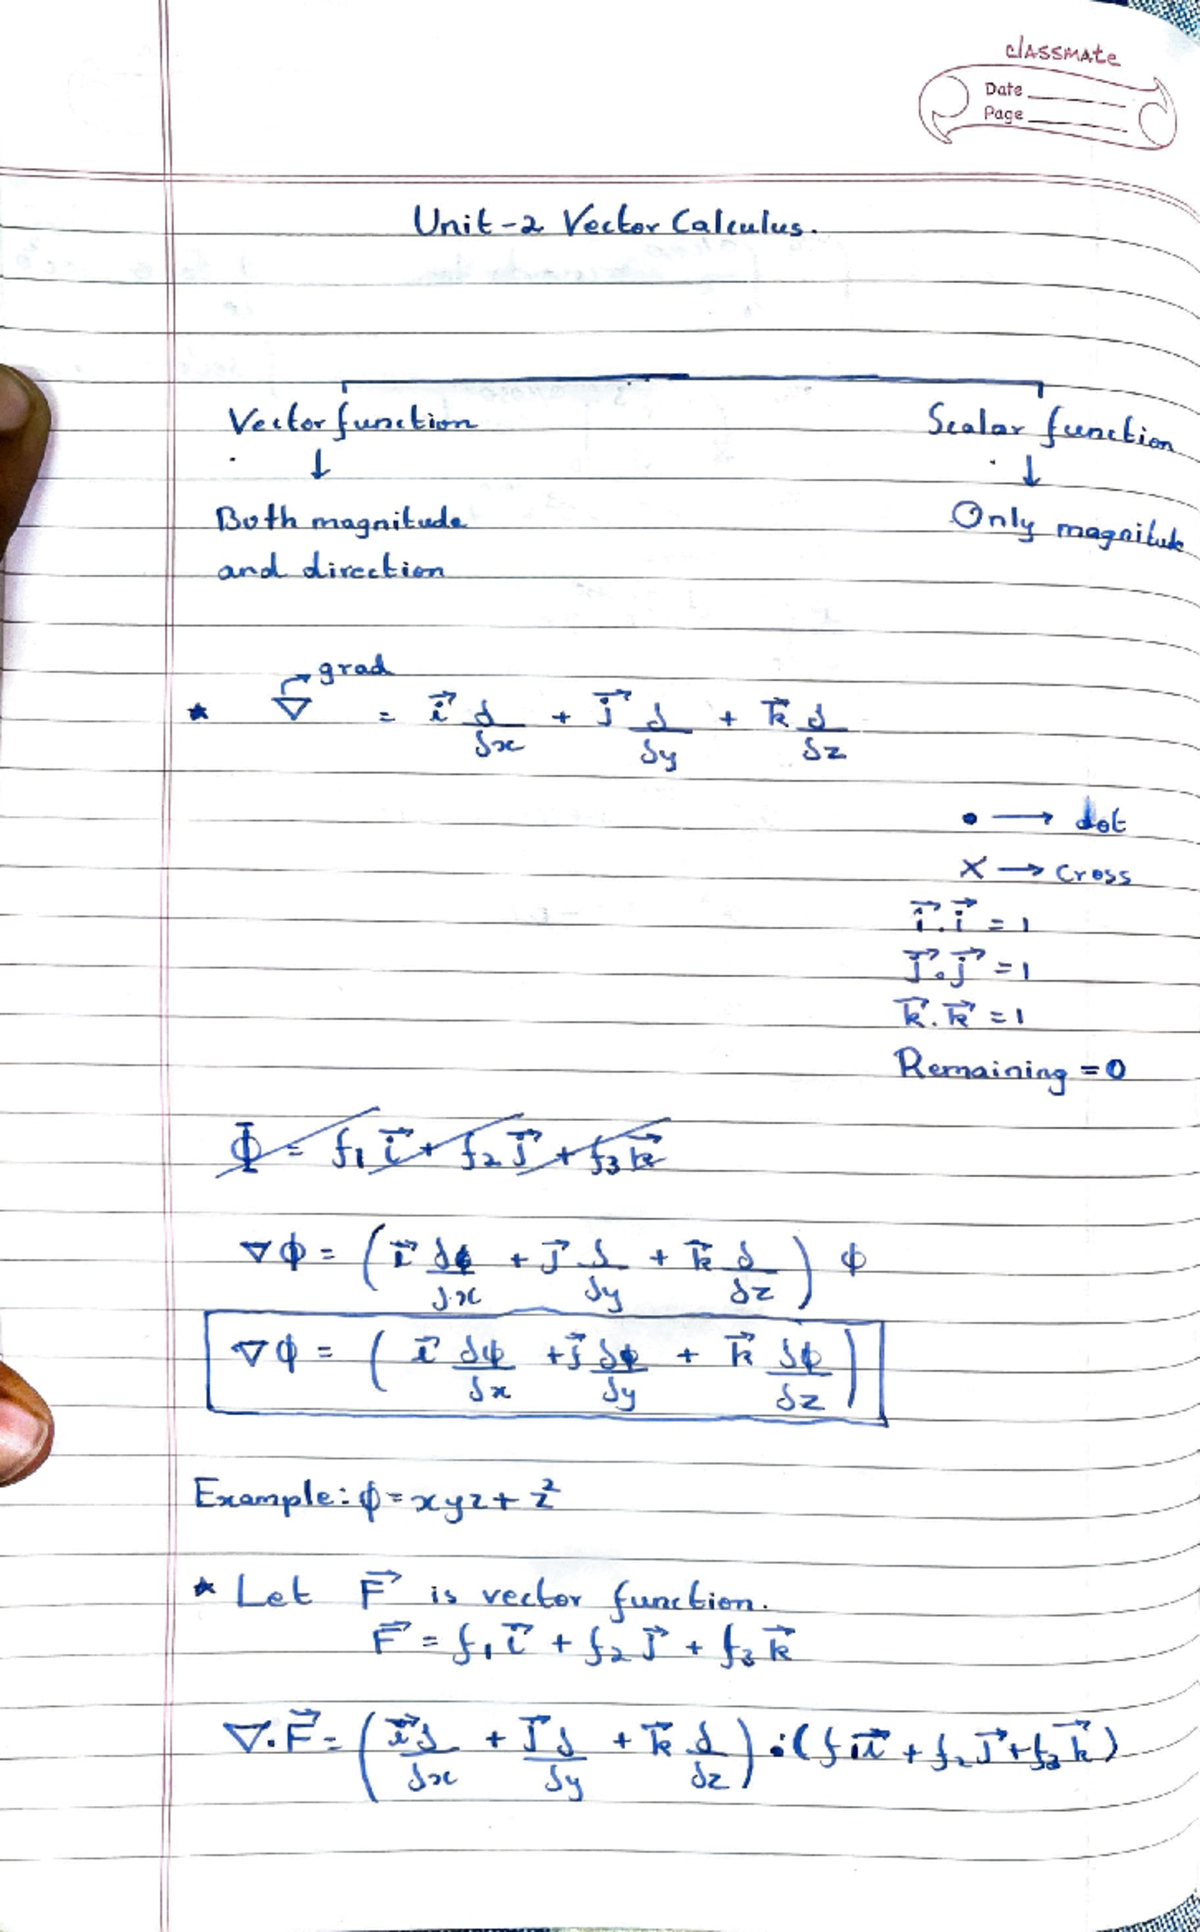 classmate
Date
Page
Unit-2 Vector Calculus.
Vector function Scalar function
↓ ↓
Both magnitude Only magnitude
and direction
grad
★ ∇ = i⃗ δ/δx + j⃗ δ/δy + k⃗ δ/δz
• → dot
× → Cross
i⃗.i⃗ = 1
j⃗.j⃗ = 1
k⃗.k⃗ = 1
Remaining = 0
Φ = f₁i⃗ + f₂j⃗ + f₃k⃗
∇ϕ = (i⃗ δϕ/δx + j⃗ δ/δy + k⃗ δ/δz) ϕ
∇ϕ = (i⃗ δϕ/δx + j⃗ δϕ/δy + k⃗ δϕ/δz)
Example: ϕ = xyz + z²
★ Let F⃗ is vector function.
F⃗ = f₁i⃗ + f₂j⃗ + f₃k⃗
∇.F⃗ = (i⃗ δ/δx + j⃗ δ/δy + k⃗ δ/δz) . (f₁i⃗ + f₂j⃗ + f₃k⃗)